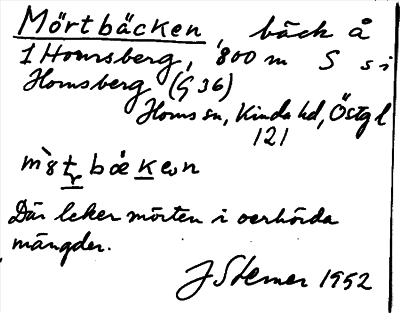 Mörtbäcken, bäck å
1 Homsberg, 800 m S si
Homsberg (G 36)
Horns sn, Kinda hd, Östgl
121
Där leker mörten i oerhörda
mängder.
J Sterner 1952